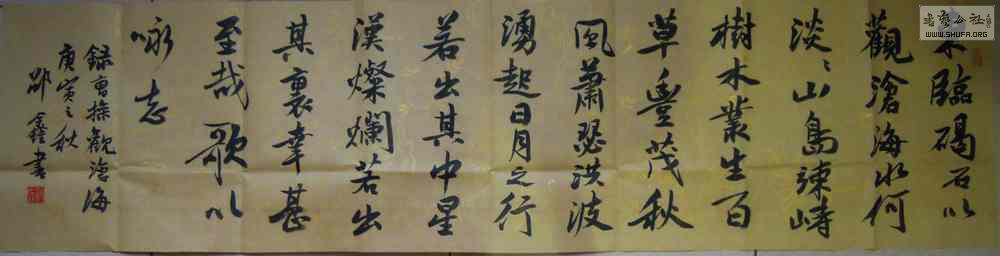 東臨碣石以
觀滄海水何
淡〻山島竦峙
樹木叢生百
草豐茂秋
風蕭瑟洪波
湧起日月之行
若出其中星
漢燦爛若出
其裏幸甚
至哉歌以
咏志
錄曹操觀滄海
庚寅之秋
書
書艺公社
WWW.SHUFA.ORG